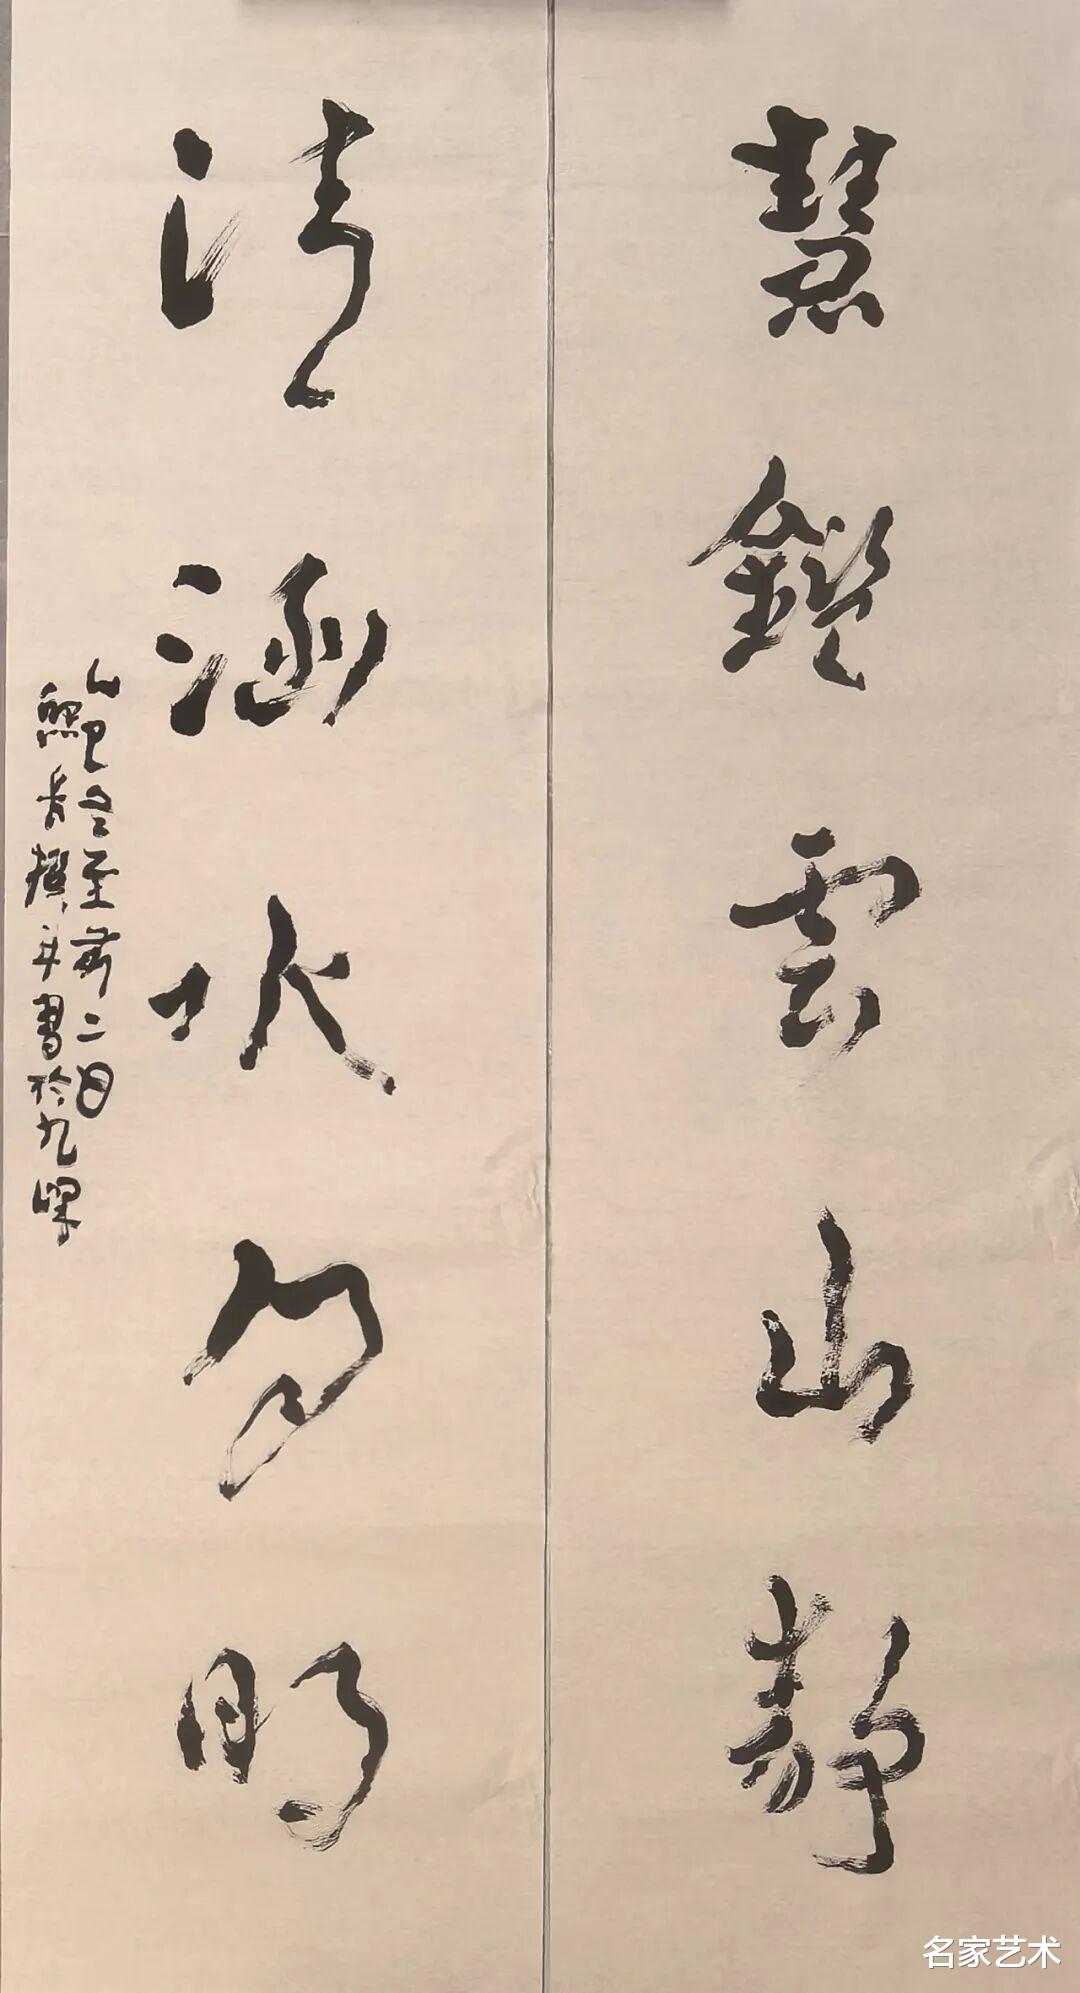 慧鑑雲山靜
清涵水月明
乙巳冬至前二日
熊 撰並書於九
名家艺术